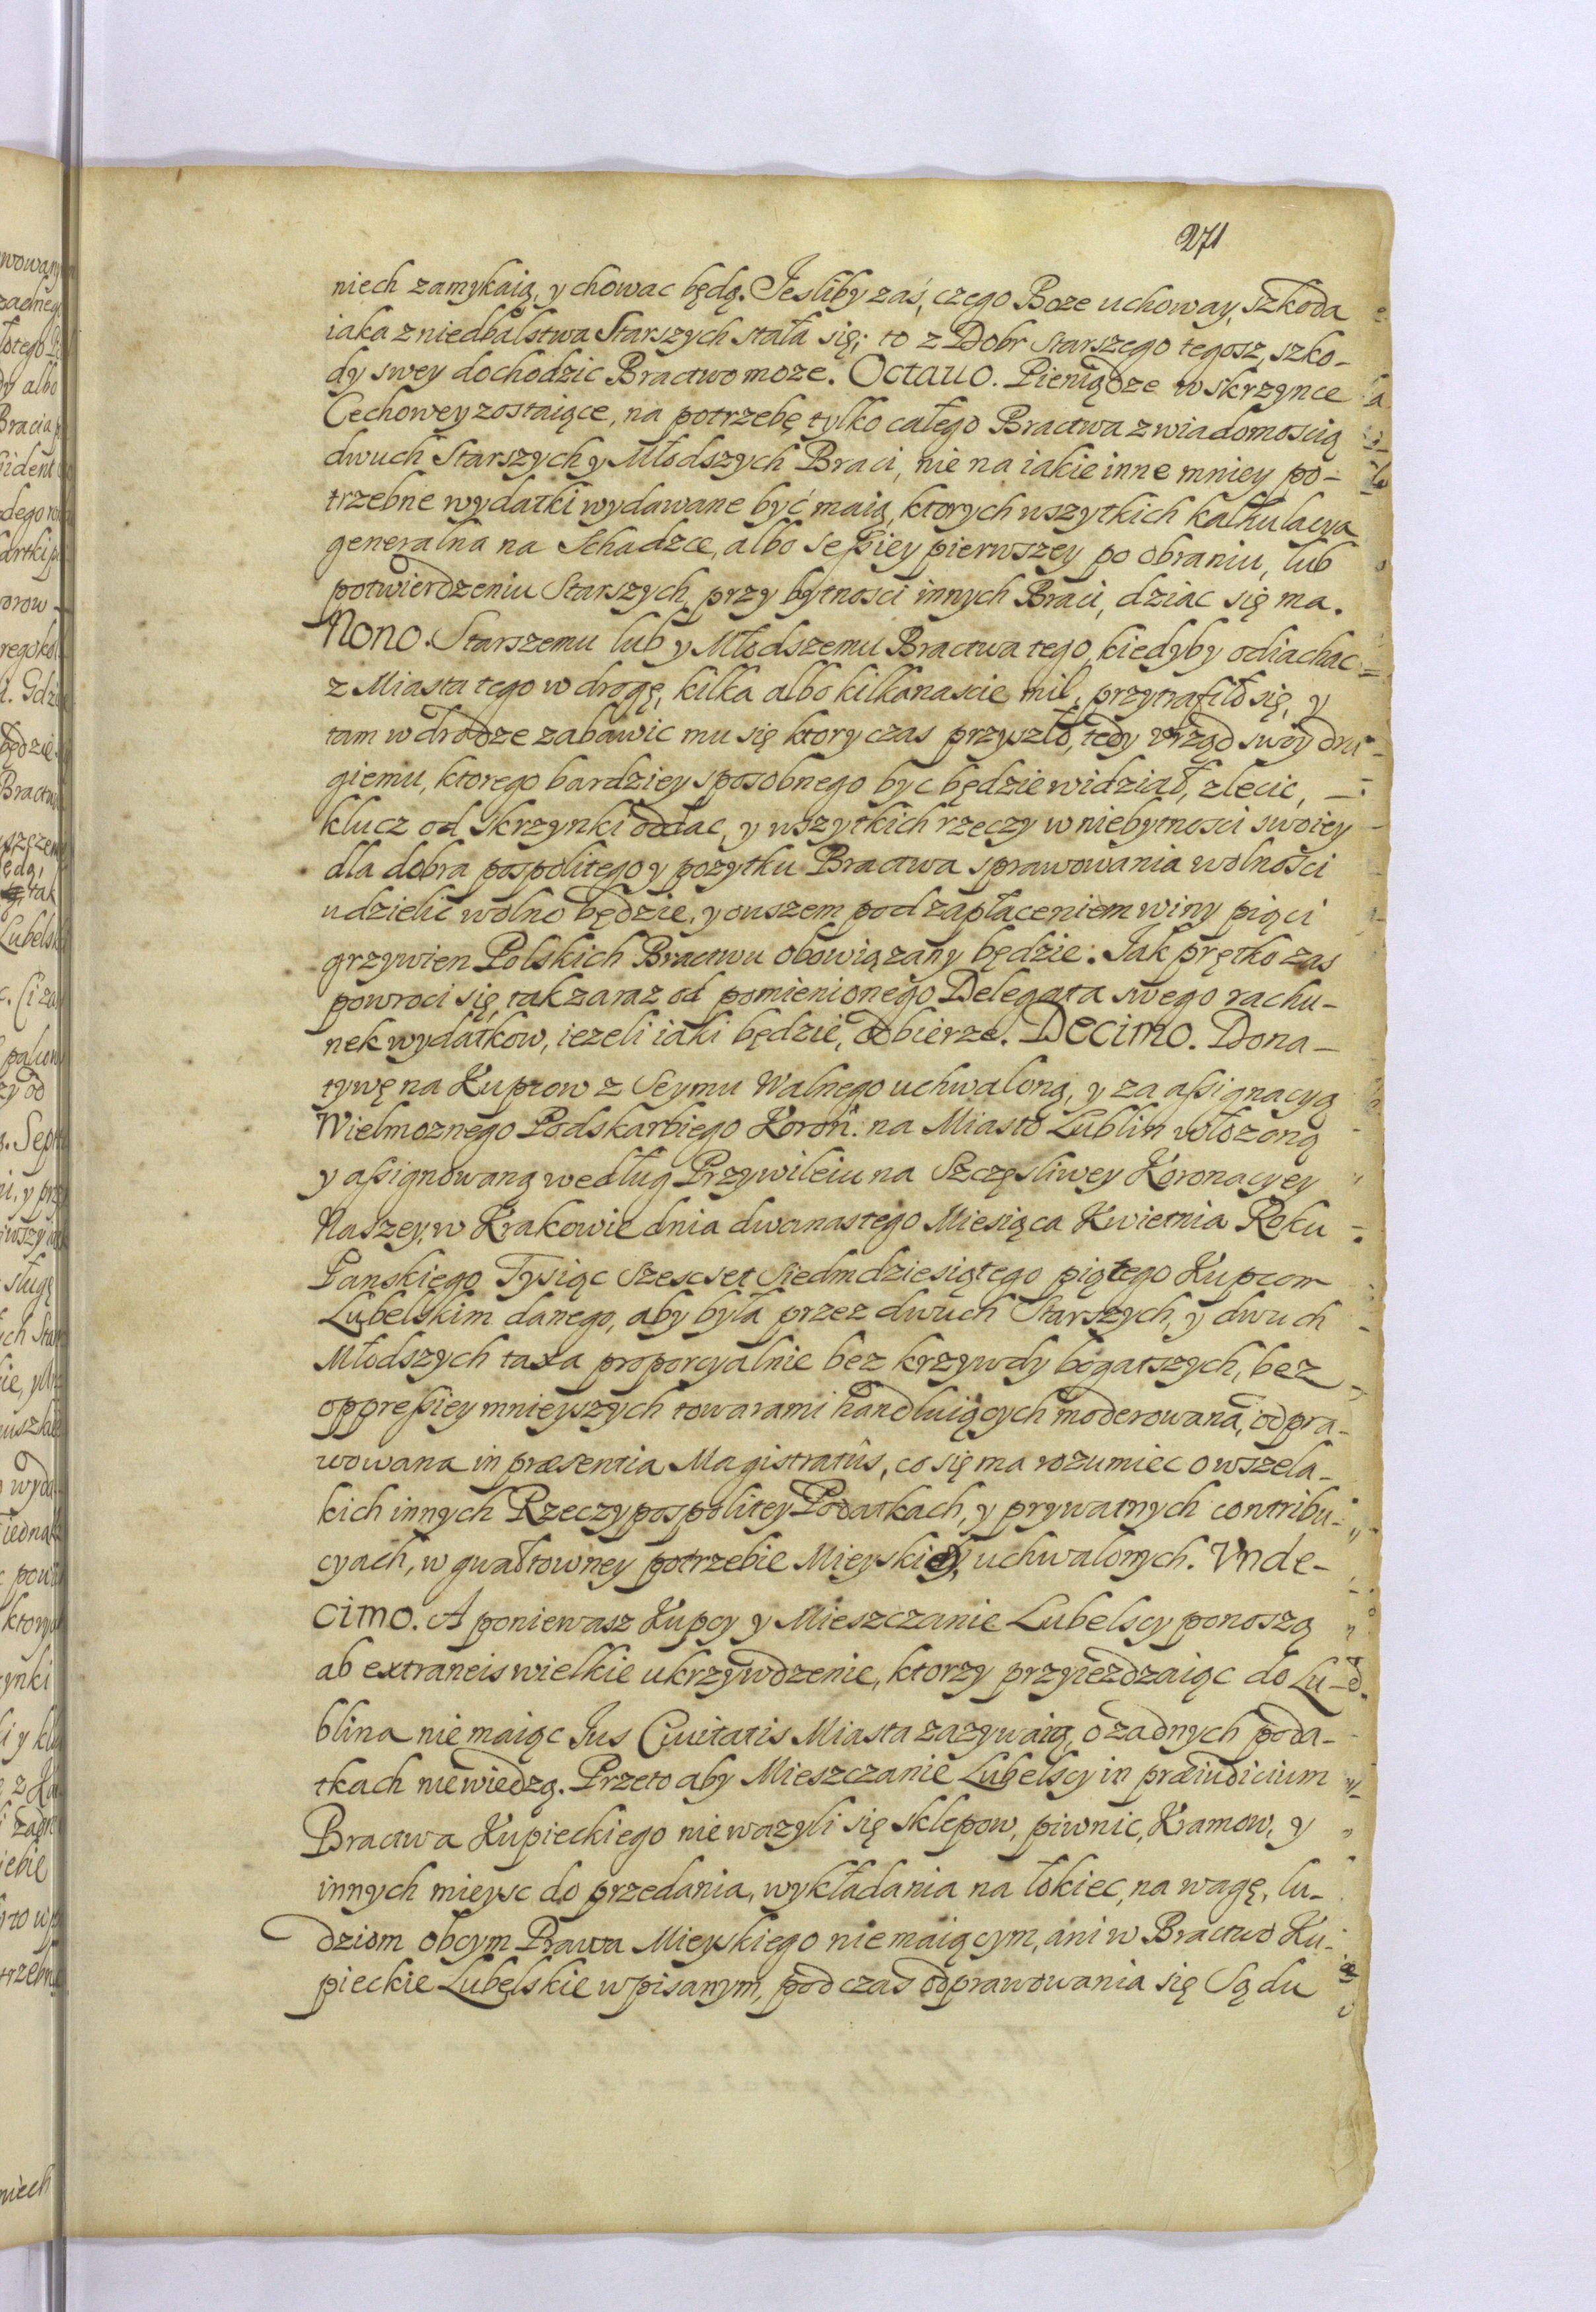 271
niech zamykaią, y chowac będą. Jesliby zaś, czego Boze uchoway, szkoda
iaka z niedbalstwa Starszych stała się; to z Dobr Starszego tegosz, szko-
dy swey dochodzic Bractwo moze. Octauo. Pieniądze w skrzynce
Cechowey zostaiące, na potrzebę tylko całego Bractwa z wiadomoscią
dwuch Starszych y Młodszych Braci, nie na iakie inne mniey po-
trzebne wydatki wydawane być maią, ktorych wszytkich kalkulacya
generalna na Schadzce, albo Seßiey pierwszey po obraniu, lub
potwierdzeniu Starszych, przy bytnosci innych Braci, dziac się ma.
Nono. Starszemu lub y Młodszemu Bractwa tego, kiedyby odiachac
z Miasta tego w drogę, kilka albo kilkanascie mil, przytrafiło się, y
tam w drodze zabawic mu się ktory czas przyszło, tedy Vrząd swoy dru
giemu, ktorego bardziey sposobnego byc będzie widział, zlecic, —
klucz od Skrzynki oddac, y wszytkich rzeczy w niebytnosci swoiey
dla dobra pospolitego y pozytku Bractwa sprawowania wolności
udzielic wolno będzie, y owszem pod zapłaceniem winy pięci
grzywien Polskich Bractwu obowiązany będzie. Jak prętko zas
powroci się, tak zaraz od pomienionego Delegata swego rachu-
nek wydatkow, iezeli iaki będzie, odbierze. Decimo. Dona-
tywę na Kupcow z Seymu Walnego uchwaloną, y za aßignacyą
Wielmoznego Podskarbiego Koroñ. na Miasto Lublin włozoną
y aßignowaną według Przywileiu na Szczęsliwey Koronacyey
Naszey, w Krakowie dnia dwunastego Miesiąca Kwietnia Roku
Panskiego Tysiąc Szescset Siedmdziesiątego piątego Kupcom
Lubelskim danego, aby była przez dwuch Starszych, y dwuch
Młodszych taxa proporcyalnie bez krzywdy bogatszych, bez
oppreßiey mnieyszych towarami handluiących moderowana, odpra-
wowana in præsentia Magistratûs, co się ma rozumiec o wszela-
kich innych Rzeczypospolitey Podatkach, y prywatnych contribu-
cyach, w gwałtowney potrzebie Mieyskiey, uchwalonych. Vnde-
cimo. A poniewasz Kupcy y Mieszczanie Lubelscy ponoszą
ab extraneis wielkie ukrzywdzenie, ktorzy przyiezdzaiąc do Lu-
blina nie maiąc Jus Ciuitatis Miasta zazywaią, o zadnych poda-
tkach nie wiedzą. Przeto aby Mieszczanie Lubelscy in præiudicium
Bractwa Kupieckiego nie wazyli się sklepow, piwnic, Kramow, y
innych mieysc do przedania, wykładania na łokiec, na wagę, lu-
dziom obcym Prawa Mieyskiego nie maiącym, ani w Bractwo Ku-
pieckie Lubelskie wpisanym, podczas odprawowania się Sądu